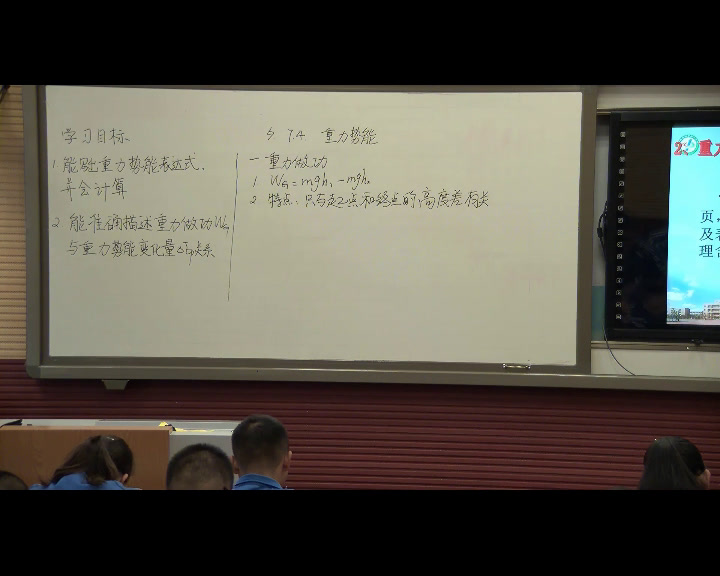 学习目标
1. 能默重力势能表达式.
并会计算
2. 能准确描述重力做功WG
与重力势能变化量ΔEp关系
§ 7.4 重力势能
一 重力做功
1. WG = mgh1 - mgh2
2. 特点: 只与起点和终点的高度差有关
2
重力
页,
及表
理含